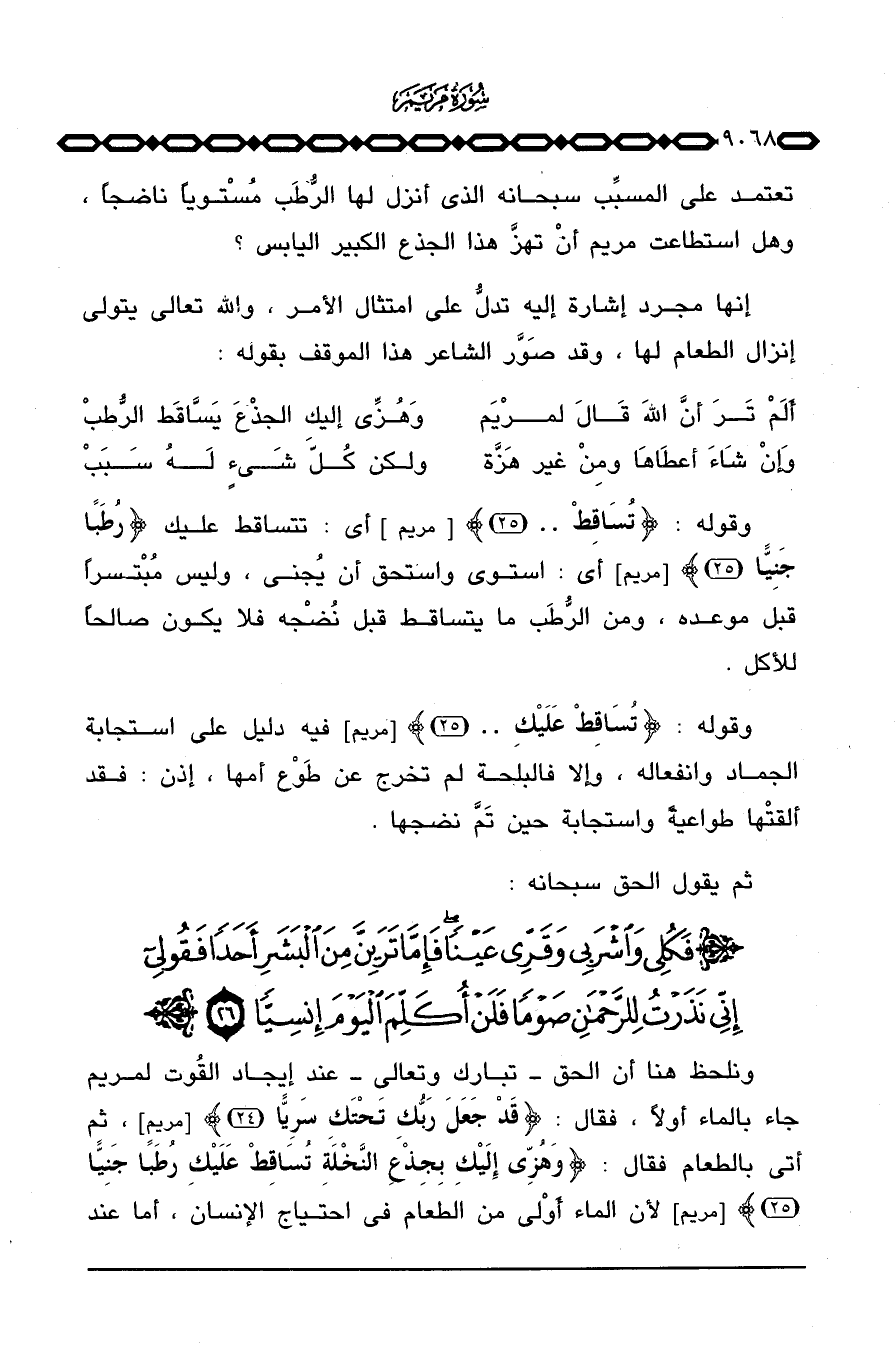 سُورَةُ مَرْيَمَ
٩٠٦٨
تعتمد على المسبِّب سبحانه الذى أنزل لها الرُّطَب مُسْتوياً ناضجاً ،
وهل استطاعت مريم أنْ تهزَّ هذا الجذع الكبير اليابس ؟
إنها مجرد إشارة إليه تدلُّ على امتثال الأمر ، والله تعالى يتولى
إنزال الطعام لها ، وقد صَوَّر الشاعر هذا الموقف بقوله :
أَلَمْ تَرَ أنَّ اللهَ قَالَ لمرْيَم وَهُزِّى إليكِ الجذْعَ يَسَّاقَط الرُّطبْ
وَإنْ شَاءَ أعطَاهَا ومنْ غير هَزَّة ولكن كُلّ شَىءٍ لَهُ سَبَبْ
وقوله : ﴿ تُسَاقِطْ .. (٢٥) ﴾ [ مريم ] أى : تتساقط عليك ﴿ رُطَبًا
جَنِيًّا (٢٥) ﴾ [مريم] أى : استوى واستحق أن يُجنى ، وليس مُبْتسراً
قبل موعده ، ومن الرُّطَب ما يتساقط قبل نُضْجه فلا يكون صالحاً
للأكل .
وقوله : ﴿ تُسَاقِطْ عَلَيْكِ .. (٢٥) ﴾ [مريم] فيه دليل على استجابة
الجماد وانفعاله ، وإلا فالبلحة لم تخرج عن طَوْع أمها ، إذن : فقد
ألقتْها طواعيةً واستجابة حين تَمَّ نضجها .
ثم يقول الحق سبحانه :
﴿ فَكُلِى وَاشْرَبِى وَقَرِّى عَيْنًا ۖ فَإِمَّا تَرَيِنَّ مِنَ الْبَشَرِ أَحَدًا فَقُولِىٓ
إِنِّى نَذَرْتُ لِلرَّحْمَٰنِ صَوْمًا فَلَنْ أُكَلِّمَ الْيَوْمَ إِنسِيًّا ٢٦ ﴾
ونلحظ هنا أن الحق - تبارك وتعالى - عند إيجاد القُوت لمريم
جاء بالماء أولاً ، فقال : ﴿ قَدْ جَعَلَ رَبُّكِ تَحْتَكِ سَرِيًّا (٢٤) ﴾ [مريم] ، ثم
أتى بالطعام فقال : ﴿ وَهُزِّى إِلَيْكِ بِجِذْعِ النَّخْلَةِ تُسَاقِطْ عَلَيْكِ رُطَبًا جَنِيًّا
(٢٥) ﴾ [مريم] لأن الماء أَوْلى من الطعام فى احتياج الإنسان ، أما عند